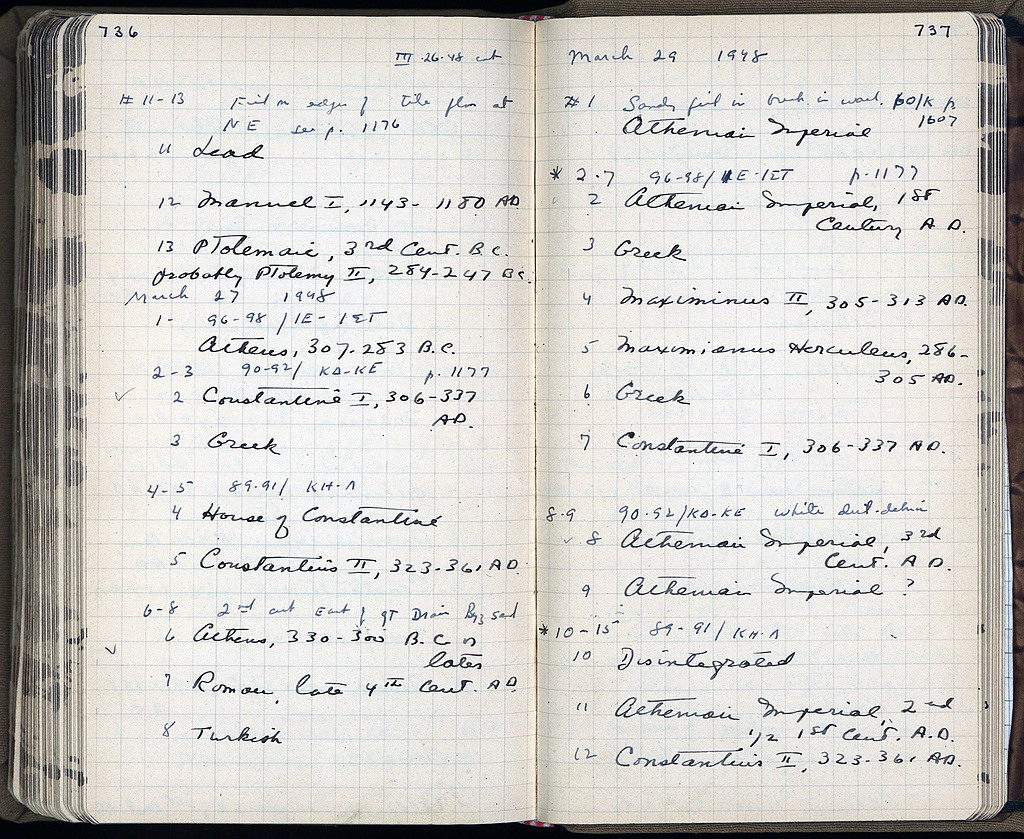 736
III·26·48 cont
#11-13 Find on edge of tile floor at
NE see p. 1176
11 Lead
12 Manuel I, 1143-1180 AD.
13 Ptolemaic, 3rd Cent. B.C.
probably Ptolemy II, 284-247 BC.
March 27 1948
1- 96-98/IE-IET
Athens, 307-283 B.C.
2-3 90-92/ KD-KE p. 1177
2 Constantine I, 306-337
AD.
3 Greek
4-5 89-91/ KH-Λ
4 House of Constantine
5 Constantius II, 323-361 AD.
6-8 2nd cut East of GT Drain Byz
6 Athens, 330-300 B.C. or
later
7 Roman, late 4th Cent. AD.
8 Turkish
737
March 29 1948
#1 Sandy fill in 60/K p.
1607
Athenian Imperial
* 2-7 96-98/IE-IET p. 1177
2 Athenian Imperial, 1st
Century A.D.
3 Greek
4 Maximinus II, 305-313 AD.
5 Maximianus Herculeus, 286-
305 AD.
6 Greek
7 Constantine I, 306-337 AD.
8-9 90-92/KD-KE white
8 Athenian Imperial, 3rd
Cent. A.D.
9 Athenian Imperial ?
*10-15 89-91/KH-Λ
10 Disintegrated
11 Athenian Imperial, 2nd
1/2 1st Cent. A.D.
12 Constantius II, 323-361 AD.